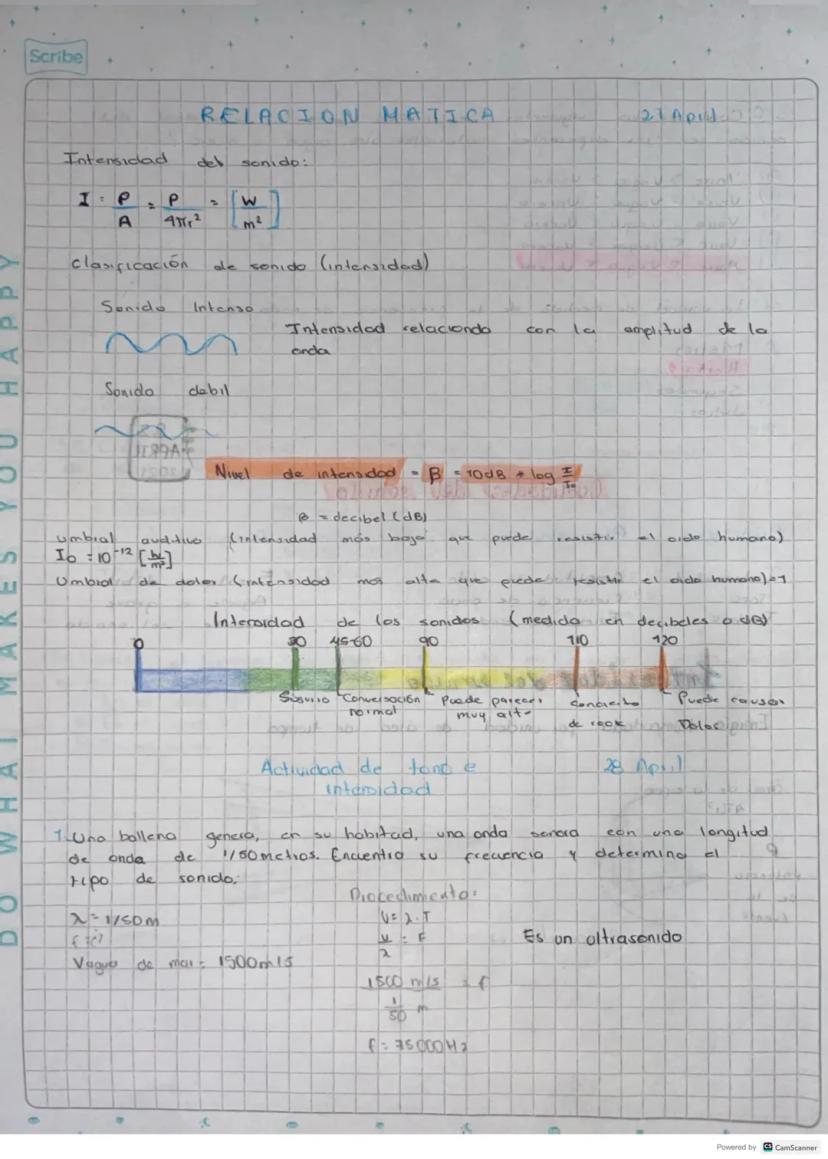 Scribe
RELACION MATICA 27 April
Intensidad del sonido:
I = P/A = P/4πr² = [W/m²]
clasificación de sonido (intensidad)
Sonido Intenso
Intensidad relaciondo con la amplitud de la
onda
Sonido debil
Nivel de intensidad = β = 10dB * log I/Io
β = decibel (dB)
umbral auditivo (intensidad más bajo que puede resistir el oido humano)
Io = 10⁻¹²
Umbral de dolor (intensidad mas alta que puede resistir el oido humano)=1
Intensidad de los sonidos (medida en decibeles o dB)
0 30 45-60 90 110 120
Susurro Conversación normal Puede parecer muy alto concierto de rock Puede causar Dolor
Actividad de tono e 28 April
intensidad
1. Una ballena genera, en su habitad, una onda sonora con una longitud
de onda de 1/50 metros. Encuentra su frecuencia y determina el
tipo de sonido.
Procedimiento:
λ = 1/50m V = λ.T
f = ? V/λ = F Es un ultrasonido
Vagua de mar = 1500m/s
1500 m/s / 1/50 m = f
f = 75000Hz
DO WHAT MAKES YOU HAPPY
Powered by CS CamScanner